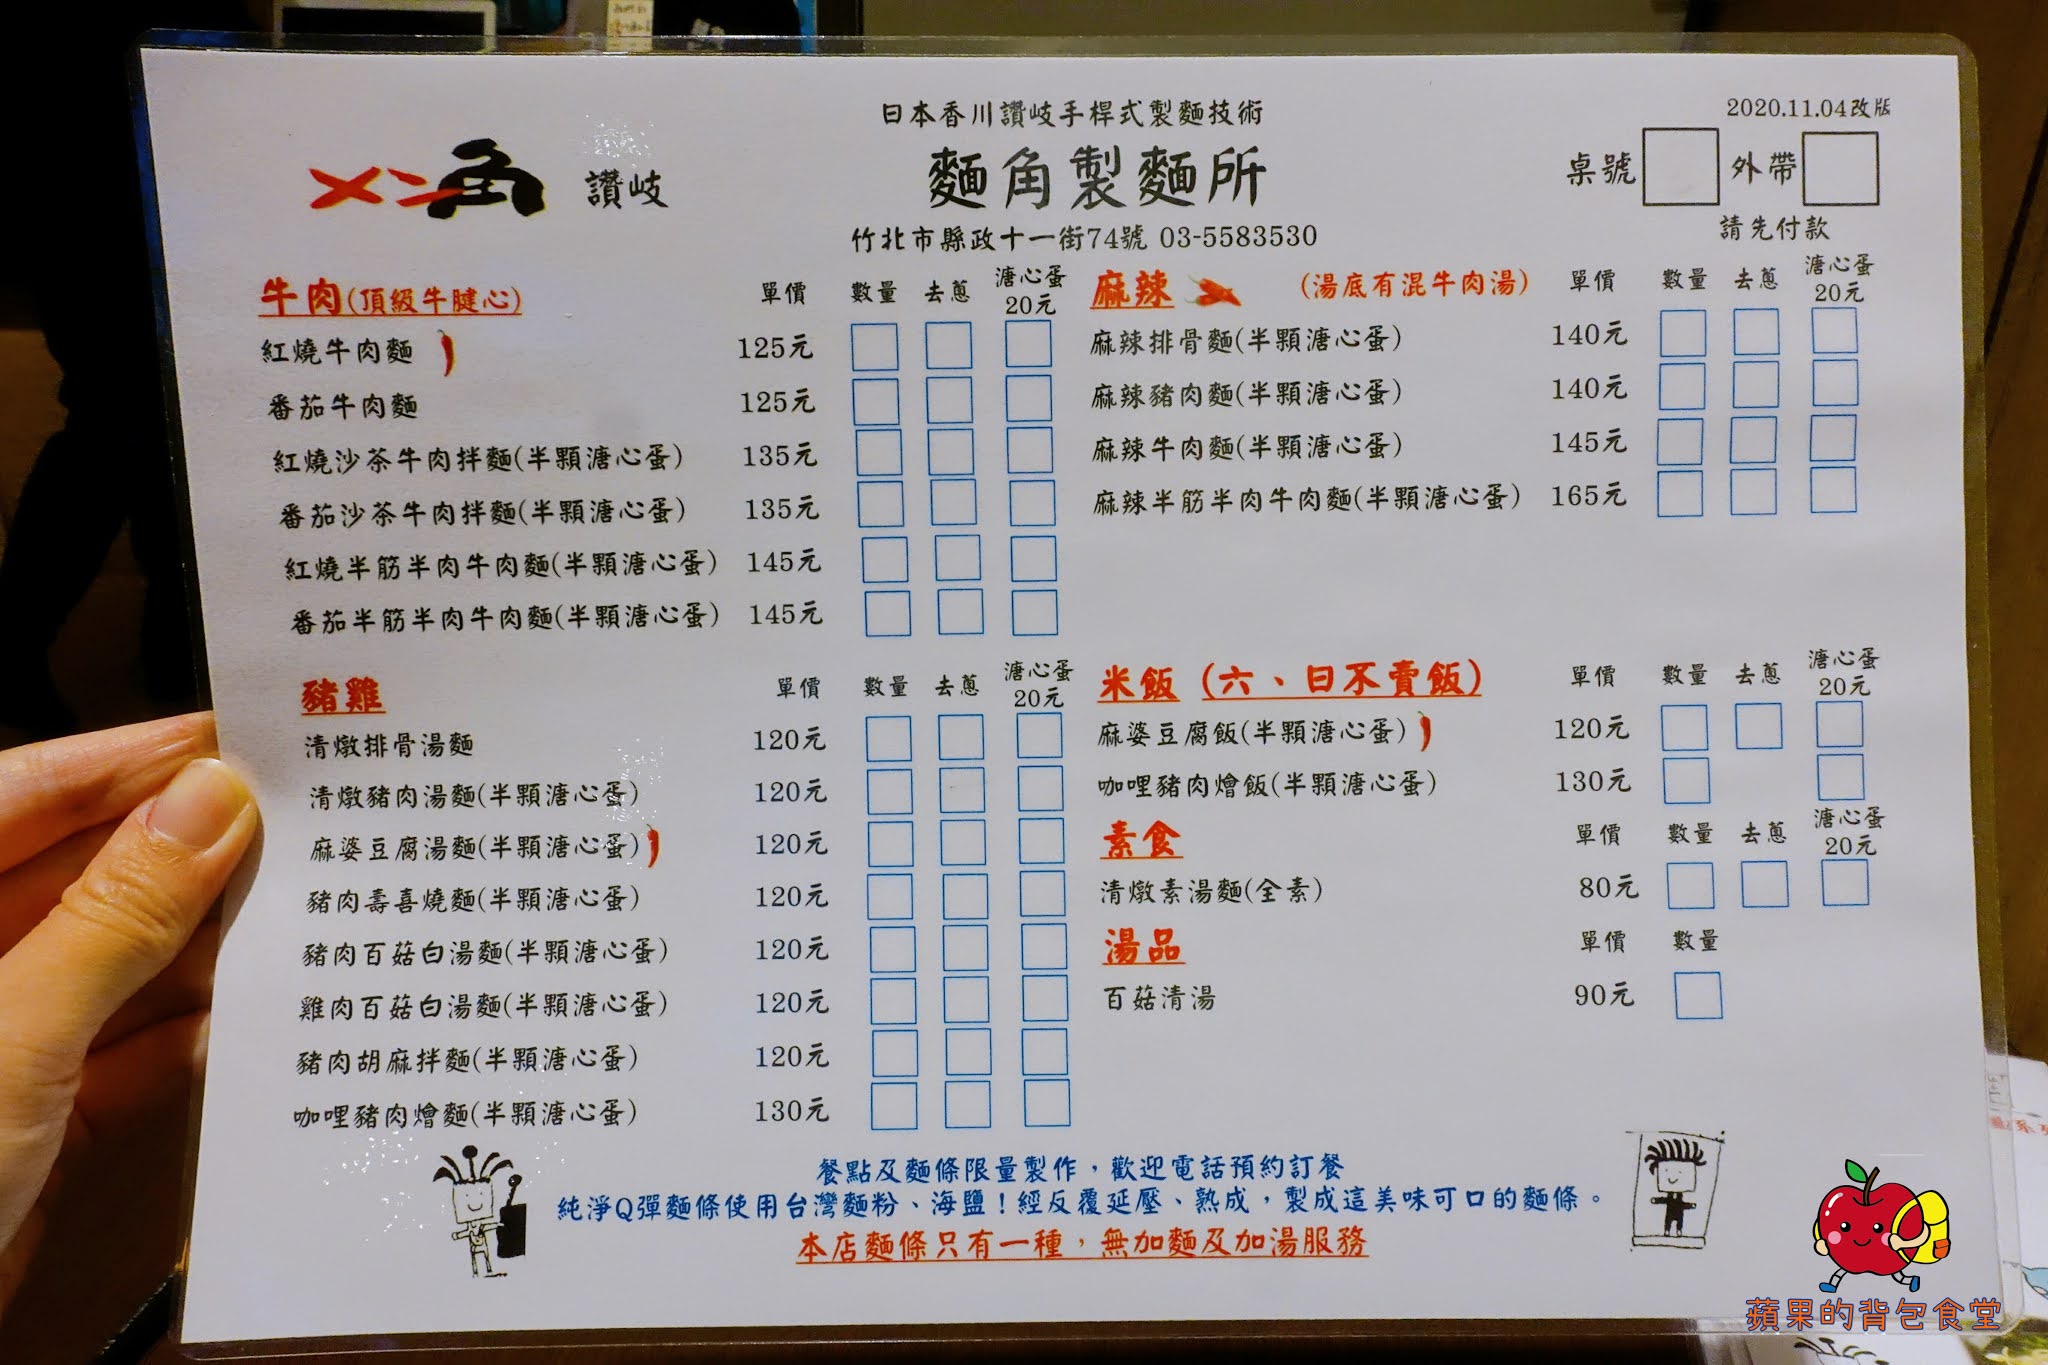 日本香川讚岐手桿式製麵技術
2020.11.04改版
メン角 讚岐
麵角製麵所
桌號 外帶
請先付款
竹北市縣政十一街74號 03-5583530
牛肉(頂級牛腱心) 單價 數量 去蔥 溏心蛋 20元
紅燒牛肉麵 125元
番茄牛肉麵 125元
紅燒沙茶牛肉拌麵(半顆溏心蛋) 135元
番茄沙茶牛肉拌麵(半顆溏心蛋) 135元
紅燒半筋半肉牛肉麵(半顆溏心蛋) 145元
番茄半筋半肉牛肉麵(半顆溏心蛋) 145元
豬雞 單價 數量 去蔥 溏心蛋 20元
清燉排骨湯麵 120元
清燉豬肉湯麵(半顆溏心蛋) 120元
麻婆豆腐湯麵(半顆溏心蛋) 120元
豬肉壽喜燒麵(半顆溏心蛋) 120元
豬肉百菇白湯麵(半顆溏心蛋) 120元
雞肉百菇白湯麵(半顆溏心蛋) 120元
豬肉胡麻拌麵(半顆溏心蛋) 120元
咖哩豬肉燴麵(半顆溏心蛋) 130元
麻辣 (湯底有混牛肉湯) 單價 數量 去蔥 溏心蛋 20元
麻辣排骨麵(半顆溏心蛋) 140元
麻辣豬肉麵(半顆溏心蛋) 140元
麻辣牛肉麵(半顆溏心蛋) 145元
麻辣半筋半肉牛肉麵(半顆溏心蛋) 165元
米飯 (六、日不賣飯) 單價 數量 去蔥 溏心蛋 20元
麻婆豆腐飯(半顆溏心蛋) 120元
咖哩豬肉燴飯(半顆溏心蛋) 130元
素食 單價 數量 去蔥 溏心蛋 20元
清燉素湯麵(全素) 80元
湯品 單價 數量
百菇清湯 90元
餐點及麵條限量製作，歡迎電話預約訂餐
純淨Q彈麵條使用台灣麵粉、海鹽！經反覆延壓、熟成，製成這美味可口的麵條。
本店麵條只有一種，無加麵及加湯服務
蘋果的背包食堂